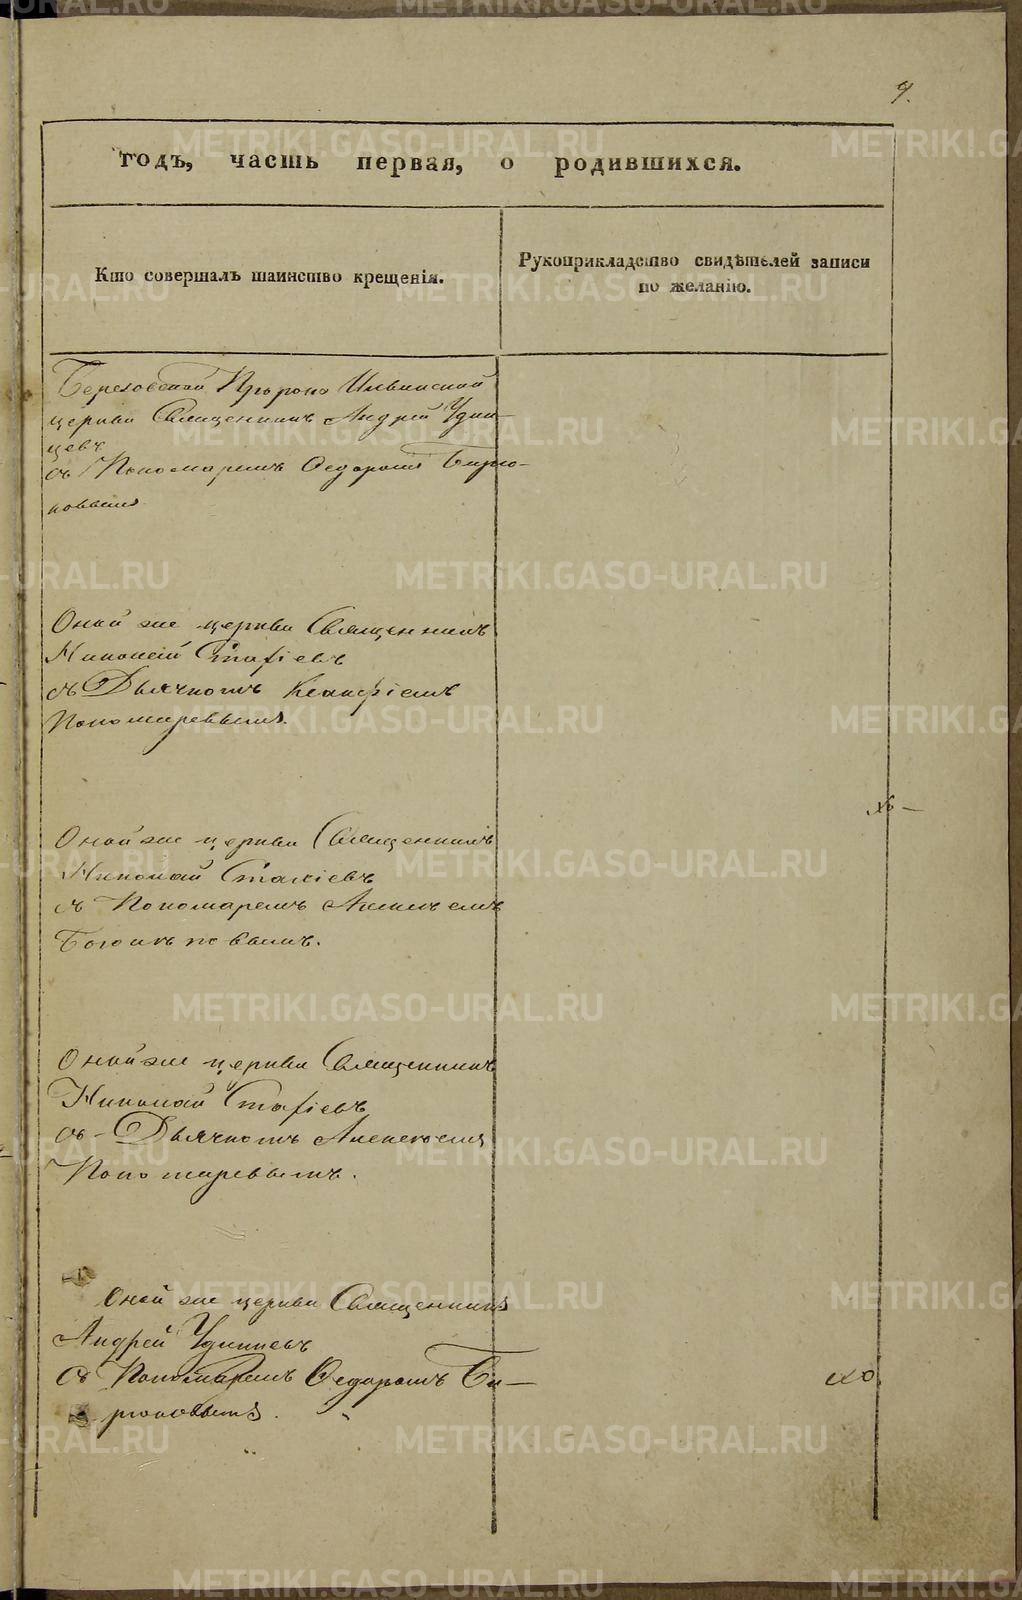 9.
годъ, часть первая, о родившихся.
Кто совершалъ таинство крещенія.
Рукоприкладство свидѣтелей записи
по желанію.
Березовской Пророко Ильинской
церкви Священникъ Андрей Удин-
цевъ
съ Пономаремъ Федоромъ Бирю-
ковымъ
Оной же церкви Священникъ
Николай Стафіевъ
съ Дьячкомъ
Пономаревымъ.
Оной же церкви Священникъ
Николай Стафіевъ
съ Пономаремъ
Оной же церкви Священникъ
Николай Стафіевъ
съ Дьячкомъ Алексеемъ
Пономаревымъ.
Оной же церкви Священникъ
Андрей Удинцевъ
съ Пономаремъ Федоромъ Би-
рюковымъ.
METRIKI.GASO-URAL.RU